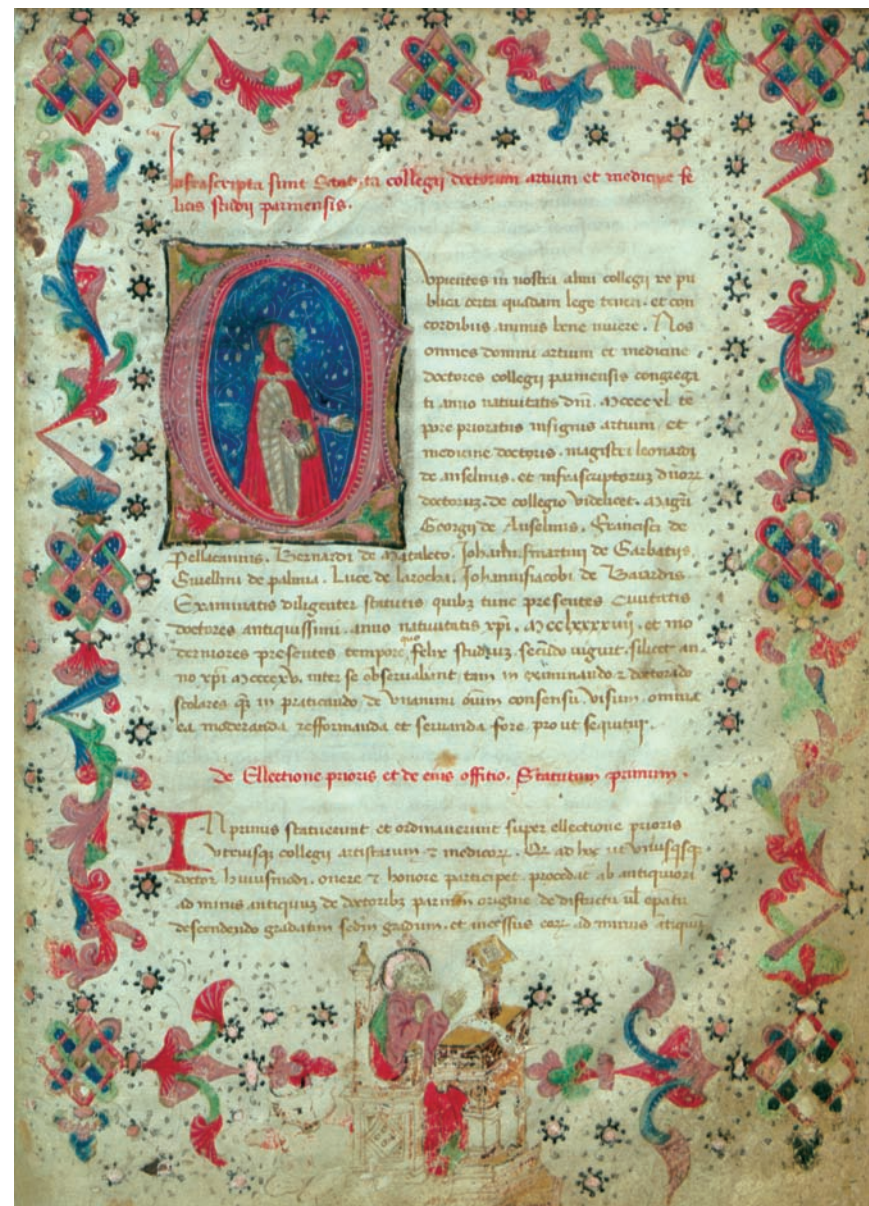 Infrascripta sunt Statuta collegij doctorum artium et medicine fe
licis studij parmensis.
upientes in nostra almi collegij re pu
blica certa quadam lege teneri. et con
cordibus animis bene viuere. Nos
omnes domini artium et medicine
doctores collegij parmensis congrega
ti anno natiuitatis dnj. Mccccxl. te
pore prioratus insignis artium et
medicine doctoris. magistri leonardi
de anselmis. et infrascriptorum dnorum
doctorum. de collegio videlicet. Magri
Georgij de Anselmis. Francisci de
Pellacanis. Bernardi de Mataleto. Johannismartini de Garbatijs.
Guellini de palmia. Luce de larocha. Johannisiacobi de Baiardis
Examinatis diligenter statutis quibus tunc presentes Ciuitatis
doctores antiquissimi. anno natiuitatis xpi. Mcclxxxxviij. et mo
derniores presentes tempore quo felix studium secundo viguit. silicet an
no xpi Mccccxv. inter se obseruabant tam in examinando z doctorando
scolares qz in praticando. de vnanimi oium consensu. visum. omnia
ea moderanda refformanda et seruanda fore pro ut sequitur.
de Ellectione prioris et de eius offitio. Statutum primum.
In primis statuerunt et ordinauerunt super ellectione prioris
vtriusqz collegij artistarum z medicorum. ad hoc ut
doctor huiusmodi. onere z honore participet. procedat ab antiquiori
ad minus antiquum de doctoribus parmen origine de districtu ul epatu
descendendo gradatim scdm gradum. et ingressus eorum ad minus antiquum